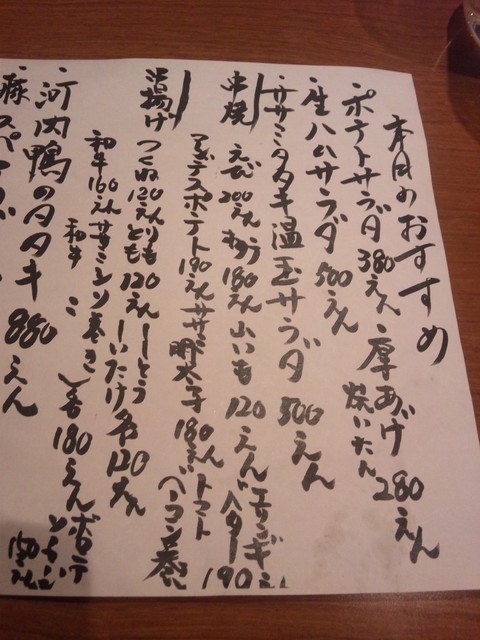 本日のおすすめ
ポテトサラダ 380えん ・厚あげ焼いたん 280えん
・生ハムサラダ 500えん
・ササミタタキ温玉サラダ 500えん
串焼 えび200えん 180えん 山いも 120えん エリンギ バター 190
アンデスポテト190えん ササミ明太子 180えん トマトベーコン巻
串揚げ つくね120えん とりもも 120えん しいたけ各120えん
和牛160えん ササミシソ巻き 180えん ポテ
・河内鴨のタタキ 880えん
150えん